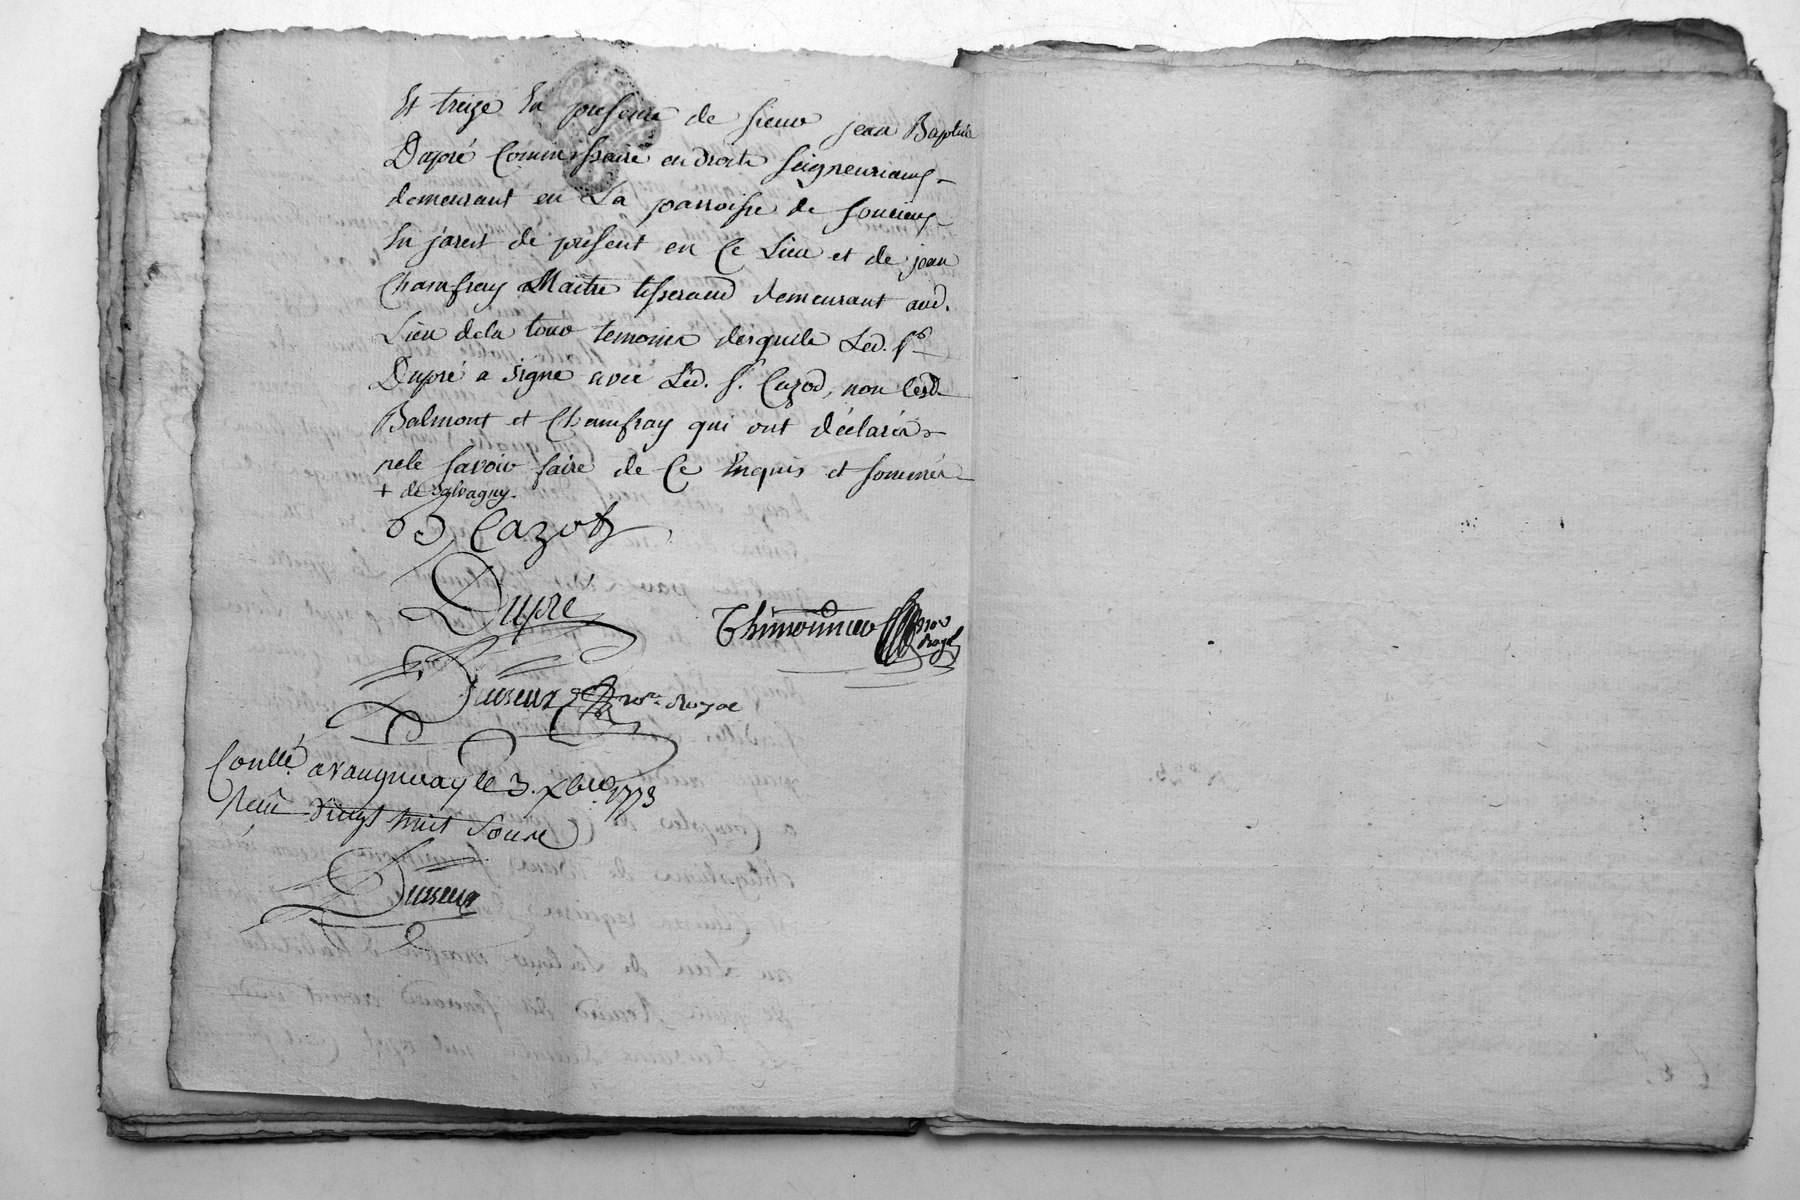 Et treize En presence de sieur jean Baptiste
Dupré Commissaire en droits seigneuriaux
demeurant en La parroisse de soucieux
En jarest de present en Ce Lieu et de jean
Chamfray Maitre tisserand demeurant aud.
Lieu dela tour temoins desquels Led. sr
Dupré a signé avec Led. s. Cazod, non lesd.
Balmont et Chamfray qui ont déclarés
nele savoir faire de Ce Enquis et sommés
+ de salvagny.
Cazot
Dupré
Thimonnier
Royal
Dussurt
Conllé. avaugneray le 3. xbre. 1773
Recu vingt huit sous
Dussurt